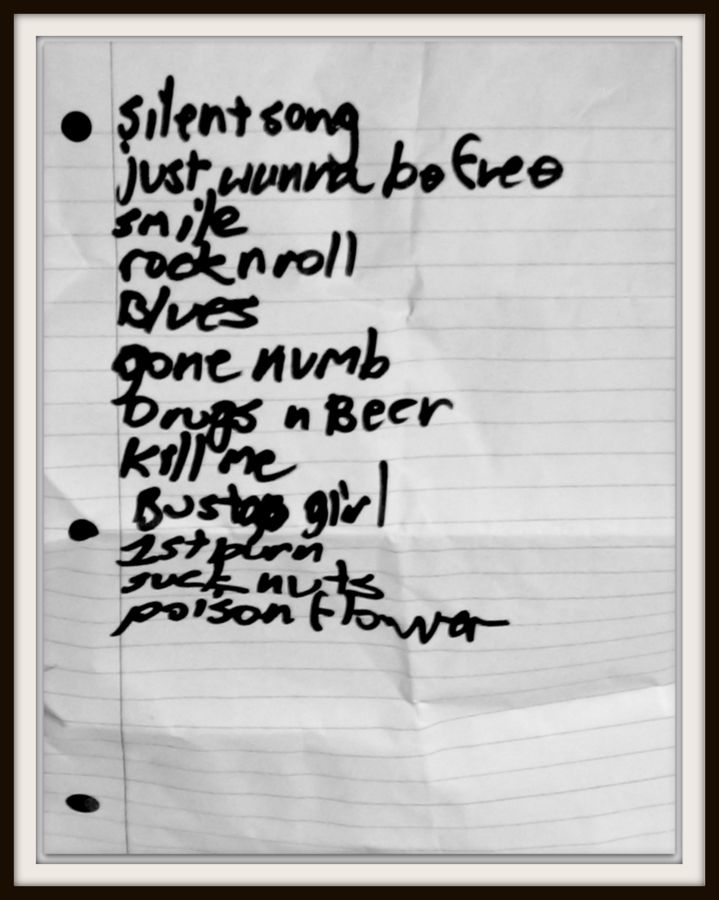 silent song
just wunna be free
smile
rock n roll
Blues
gone numb
Drugs n Beer
kill me
Bustop girl
1st purn
suck nuts
poison flower